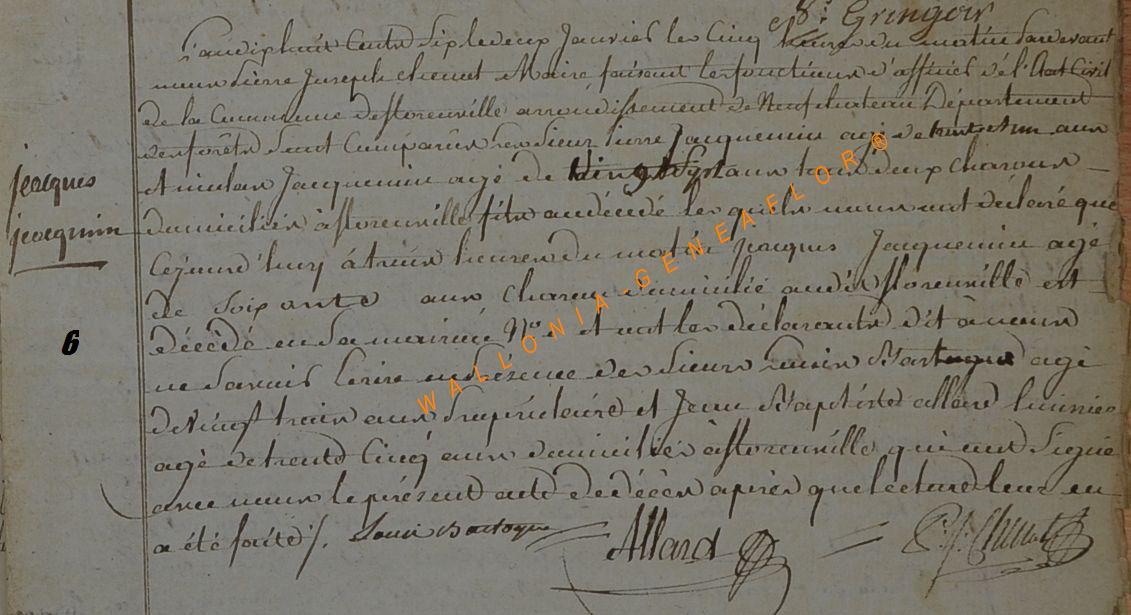 Sr. Gringoir
L'an dix huit cents dix le deux janvier les cinq heures du matin pardevant
nous Pierre Joseph Chenot Maire faisant les fonctions d'officier de l'Etat Civil
de la Commune d'assenoncville arrondissement de Neufchateau Département
des forêts sont comparus les sieurs pierre Jacquemin agé de trente et un ans
et nicolas Jacquemin agé de vingt sept ans tous deux charons
domiciliés à fils au décédé les quels nous ont déclaré que
Cejourd'huy à trois heures du matin jacques Jacquemin agé
de soixante ans charon domicilié audit est
décédé en sa maison No. et ont les déclarants dit à nous
ne savoir écrire en présence des sieurs Louis Bastogne agé
de ans propriétaire et Jean Baptiste allard
agé de trente cinq ans domiciliés à qui ont signé
avec nous le présent acte de décès après que lecture leur en
a été faite /. Louis Bastogne Allard P. J. Chenot
jacques
jacqmin
6
WALLONIA-GENEAFLOR®